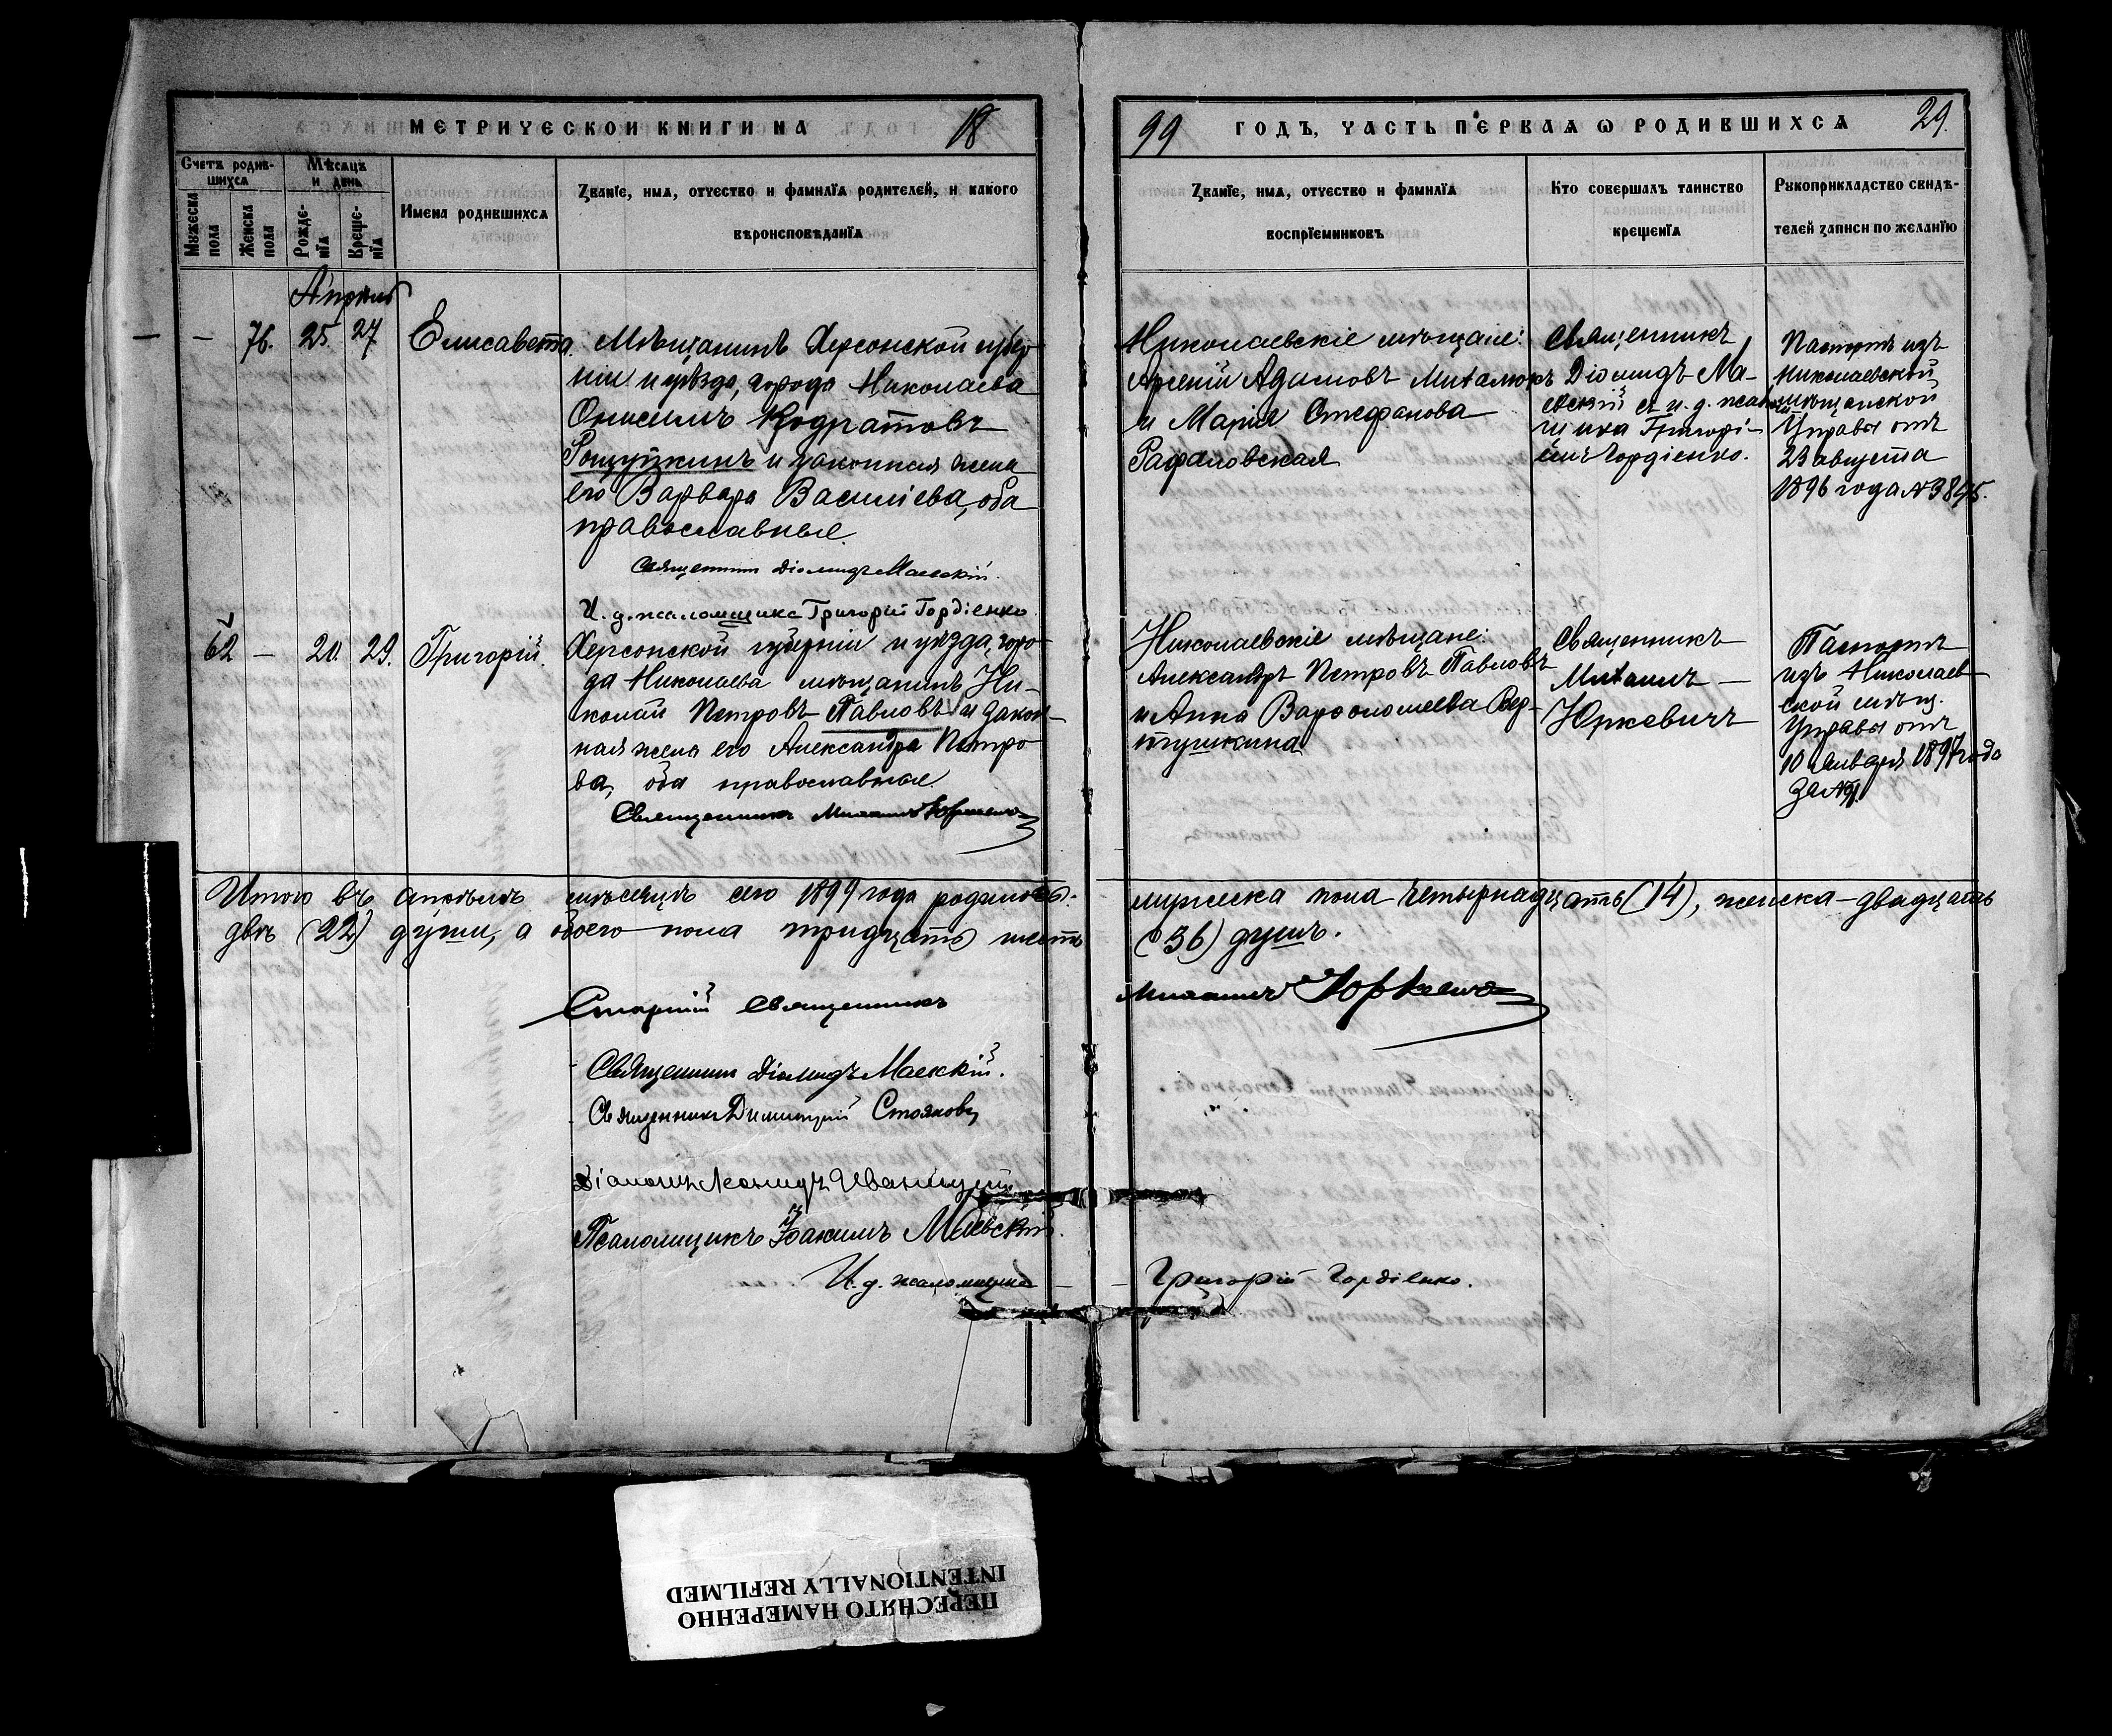 МЕТРИЧЕСКОЙ КНИГИ НА 18
99 ГОДЪ, ЧАСТЬ ПЕРВАЯ Ѡ РОДИВШИХСЯ 29.
Счетъ родив-
шихся
Мужеска
пола
Женска
пола
Мѣсяцъ
и день
Рожде-
нїя
Креще-
нїя
Имена родившихся
Званїе, имя, отчество и фамилїя родителей, и какого
вѣроисповѣданїя
Званїе, имя, отчество и фамилїя
воспрїемниковъ
Кто совершалъ таинство
крещенїя
Рукоприкладство свидѣ-
телей записи по желанїю
Апрѣль
— 76. 25. 27.
Елисавета.
Мѣщанинъ Херсонской губер-
ніи и уѣзда, города Николаева
Онисимъ Кодратовъ
Рощупкинъ и законная жена
его Варвара Василіева, оба
православные.
Священникъ Діомидъ Маевскій.
И. д. псаломщика Григорій Гордіенко
Николаевскіе мѣщане:
Арсеній Адамовъ
и Марія Стефанова
Рафаловская
Священникъ
Діомидъ Ма-
евскій съ и. д. псалом-
щика Григорі-
емъ Гордіенко.
Паспортъ изъ
Николаевской
мѣщанской
Управы отъ
23 августа
1896 года №3845.
62 — 20. 29.
Григорій.
Херсонской губерніи и уѣзда, горо-
да Николаева мѣщанинъ Ни-
колай Петровъ Павловъ и закон-
ная жена его Александра Петро-
ва, оба православные.
Священникъ Михаилъ Юркевичъ
Николаевскіе мѣщане:
Александръ Петровъ Павловъ
и Анна Варѳоломеева Вер-
тушкина
Священникъ
Михаилъ —
Юркевичъ
Паспортъ
изъ Николаев-
ской мѣщ.
Управы отъ
10 Января 1897 года
за №
Итого въ апрѣлѣ мѣсяцѣ сего 1899 года родилось: мужеска пола четырнадцать (14), женска — двадцать
двѣ (22) души, а обоего пола тридцать шесть (36) душъ.
Старшій Священникъ Михаилъ Юркевичъ
Священникъ Діомидъ Маевскій.
Священникъ Димитрій Стояновъ
Діаконъ Леонидъ Иваницкій
Псаломщикъ Іоакимъ Маевскій.
И. д. псаломщика — Григорій Гордіенко.
ПЕРЕСНЯТО НАМЕРЕННО
INTENTIONALLY REFILMED